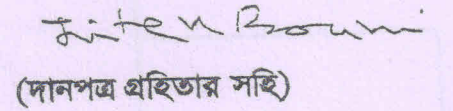 Jiten Bauri
(দানপত্র গ্রহিতার সহি)